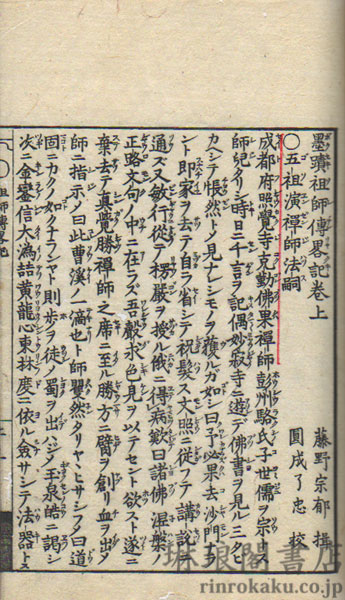 墨蹟祖師傳畧記卷上
藤野宗郁 撰
圓成了忠 校
〇五祖演禪師法嗣
成都府照覺寺克勤佛果禪師彭州駱氏子世儒ヲ宗トス
師兒タリシ時日ニ千言ヲ記偶妙寂寺ニ遊テ佛書ヲ見ル三タヒ
カヘシテ悵然トノ見ナレシモノヲ獲ルカ如シ曰予ハ果去沙門ナラ
ント即家ヲ去テ自ラ省シテ祝髪ス文照ニ從フテ講説ニ
通ス又敏行ニ從テ楞嚴ヲ授ル俄ニ得病歎曰諸佛涅槃ノ
正路文句ノ中ニ在ラス吾聲求色見ヲ以テセント欲スト遂ニ
棄去テ真覺勝禪師之席ニ至ル勝方ニ臂ヲ創リ血ヲ出ノ
師ニ指示ノ曰此曹溪ノ一滴也ト師矍然タリヤヽヒサシフノ曰道
固ニカクノ如クナランヤト則歩ヲ徒ノ蜀ヲ出ハシメ玉泉皓ニ謁シ
次ニ金鑾信大潙喆黄龍心東林度ニ依ル僉サシテ法器トス
祖師傳畧記
琳琅閣書店
rinrokaku.co.jp